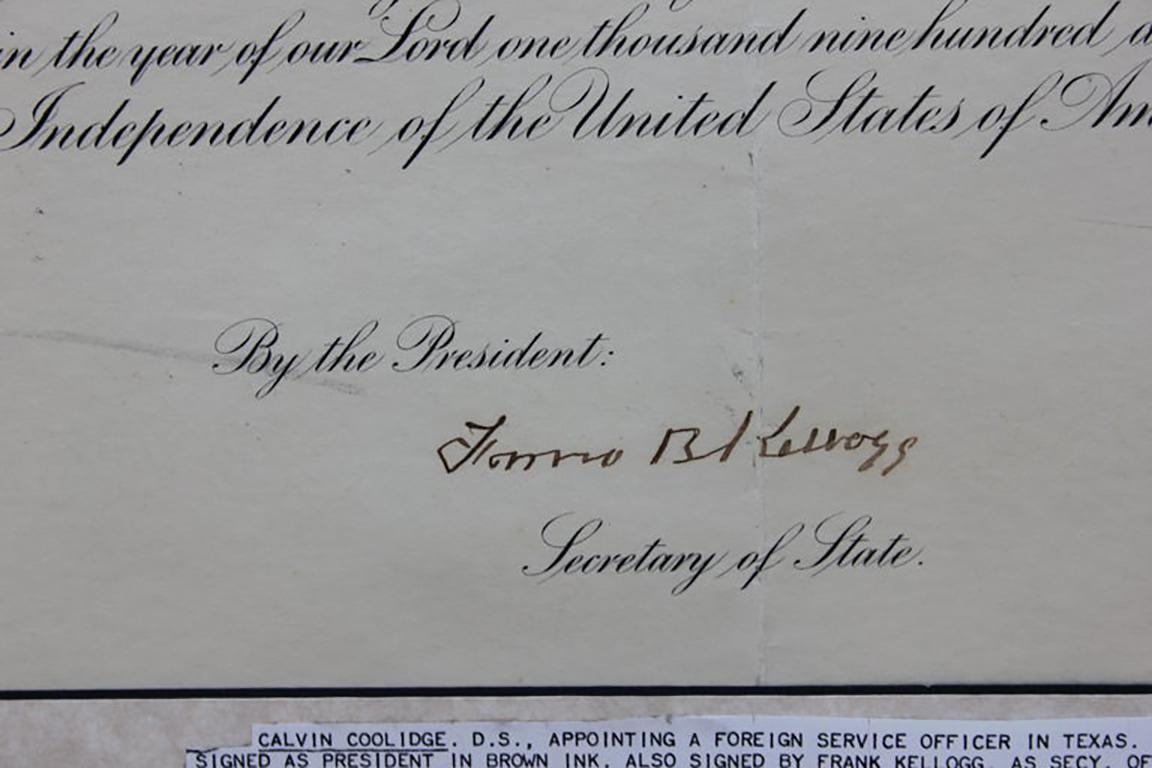 in the year of our Lord one thousand nine hundred a
Independence of the United States of Am
By the President:
Frank B Kellogg
Secretary of State.
CALVIN COOLIDGE. D.S., APPOINTING A FOREIGN SERVICE OFFICER IN TEXAS.
SIGNED AS PRESIDENT IN BROWN INK. ALSO SIGNED BY FRANK KELLOGG, AS SECY. OF